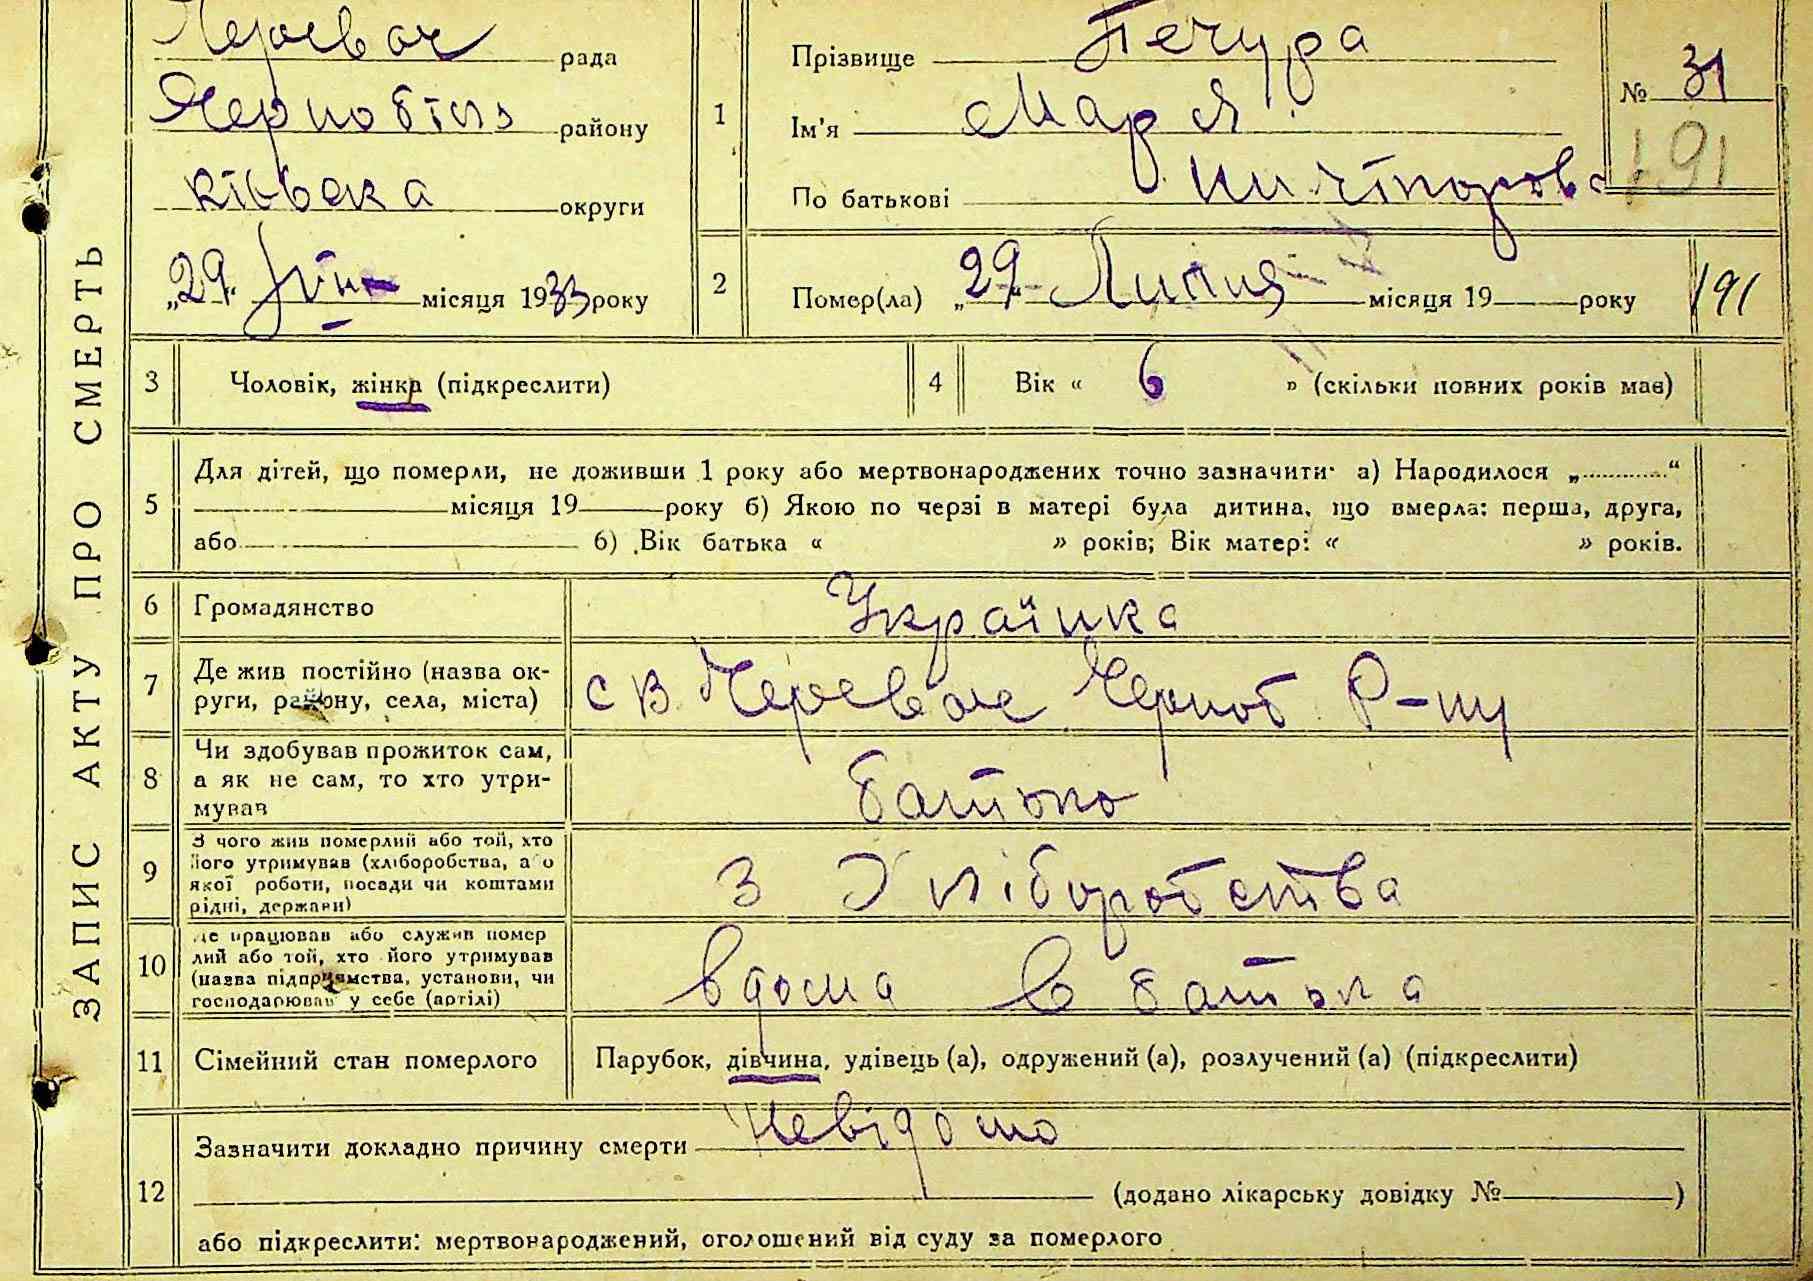 ЗАПИС АКТУ ПРО СМЕРТЬ
Черевач рада
Чорнобіль району
київска округи
„29" місяця 1933 року
1 Прізвище Печура
Ім'я Марія
По батькові
№ 31
191
2 Помер(ла) „29" Липня місяця 19 року
191
3 Чоловік, жінка (підкреслити)
4 Вік « 6 » (скільки повних років мав)
5 Для дітей, що померли, не доживши 1 року або мертвонароджених точно зазначити· а) Народилося „ “
місяця 19 року б) Якою по черзі в матері була дитина, що вмерла: перша, друга,
або б) Вік батька « » років; Вік матері « » років.
6 Громадянство Українка
7 Де жив постійно (назва ок-
руги, району, села, міста) с в. Черевач Чорноб Р-ну
8 Чи здобував прожиток сам,
а як не сам, то хто утри-
мував батько
9 З чого жив померлий або той, хто
його утримував (хліборобства, або
якої роботи, посади чи коштами
рідні, держави) З Хліборобства
10 Де працював або служив помер
лий або той, хто його утримував
(назва підприємства, установи, чи
господарював у себе (артілі) вдома в батька
11 Сімейний стан померлого Парубок, дівчина, удівець (а), одружений (а), розлучений (а) (підкреслити)
12 Зазначити докладно причину смерти Невідомо
(додано лікарську довідку № )
або підкреслити: мертвонароджений, оголошений від суду за померлого